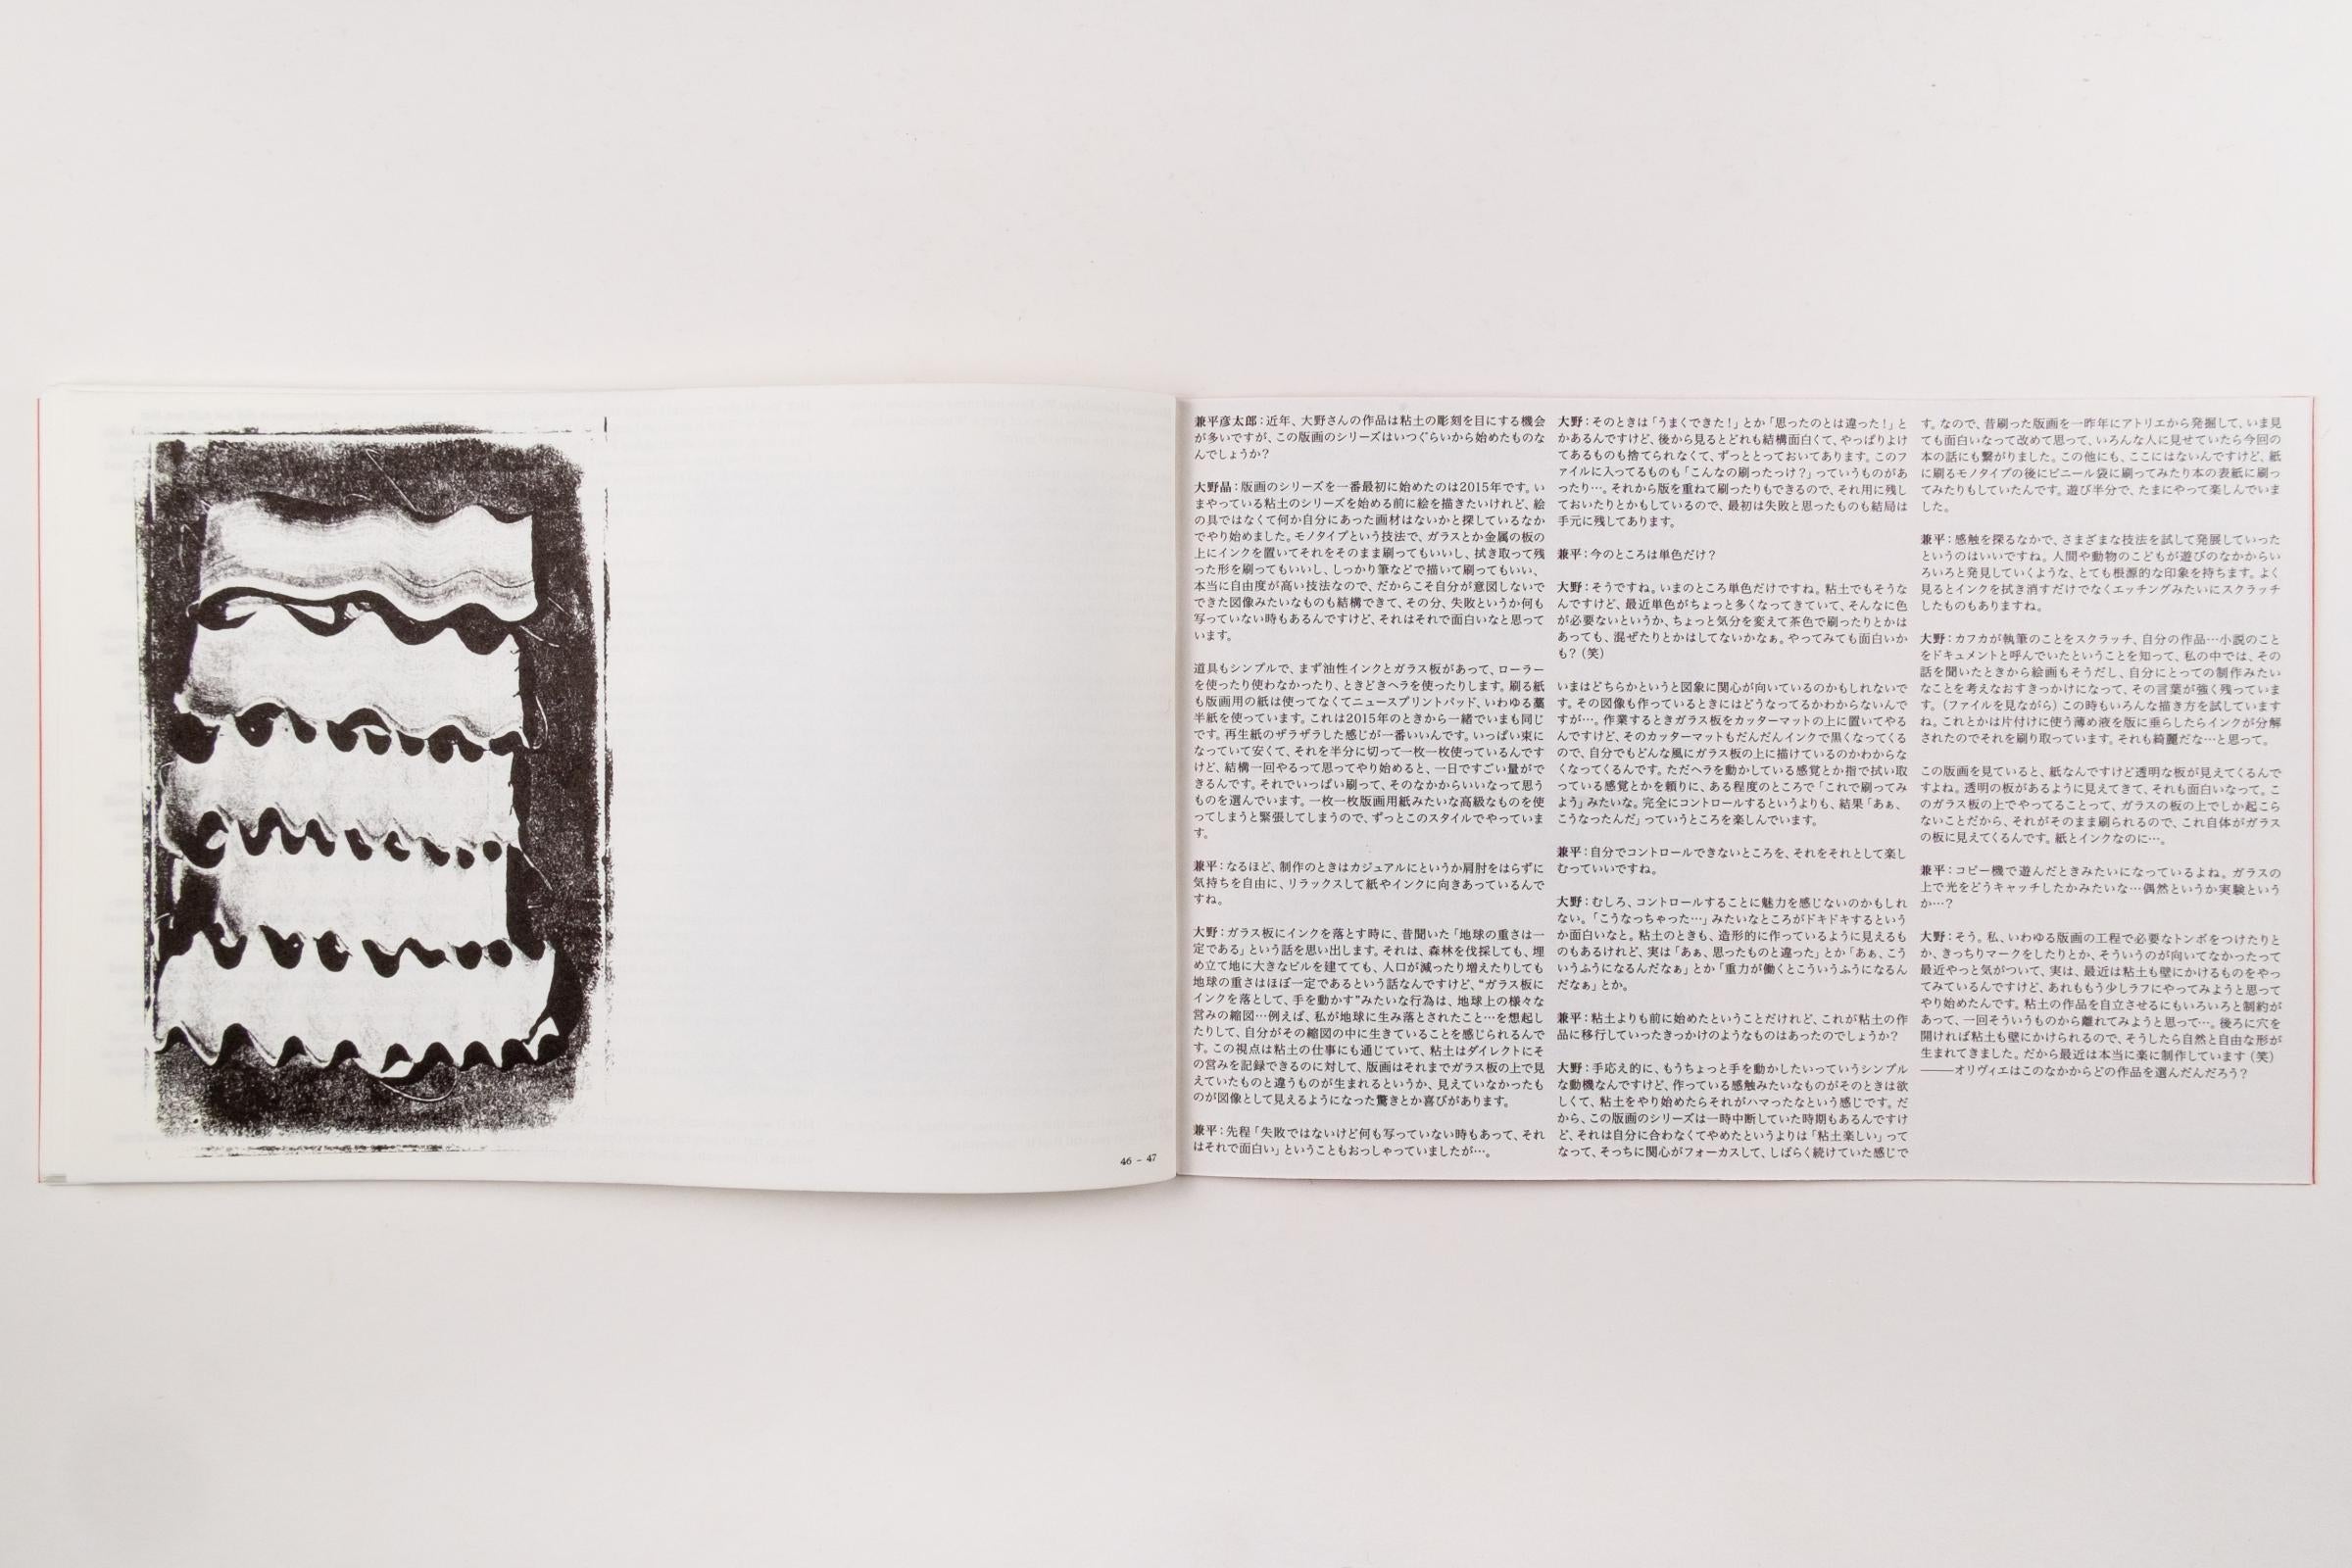 46 – 47
兼平彦太郎：近年、大野さんの作品は粘土の彫刻を目にする機会
が多いですが、この版画のシリーズはいつぐらいから始めたものな
んでしょうか？
大野晶：版画のシリーズを一番最初に始めたのは2015年です。い
まやっている粘土のシリーズを始める前に絵を描きたいけれど、絵
の具ではなくて何か自分にあった画材はないかと探しているなか
でやり始めました。モノタイプという技法で、ガラスとか金属の板の
上にインクを置いてそれをそのまま刷ってもいいし、拭き取って残
った形を刷ってもいいし、しっかり筆などで描いて刷ってもいい、
本当に自由度が高い技法なので、だからこそ自分が意図しないで
できた図像みたいなものも結構できて、その分、失敗というか何も
写っていない時もあるんですけど、それはそれで面白いなと思って
います。
道具もシンプルで、まず油性インクとガラス板があって、ローラー
を使ったり使わなかったり、ときどきヘラを使ったりします。刷る紙
も版画用の紙は使ってなくてニュースプリントパッド、いわゆる藁
半紙を使っています。これは2015年のときから一緒でいまも同じ
です。再生紙のザラザラした感じが一番いいんです。いっぱい束に
なっていて安くて、それを半分に切って一枚一枚使っているんです
けど、結構一回やるって思ってやり始めると、一日ですごい量がで
きるんです。それでいっぱい刷って、そのなかからいいなって思う
ものを選んでいます。一枚一枚版画用紙みたいな高級なものを使
ってしまうと緊張してしまうので、ずっとこのスタイルでやっていま
す。
兼平：なるほど、制作のときはカジュアルにというか肩肘をはらずに
気持ちを自由に、リラックスして紙やインクに向きあっているんで
すね。
大野：ガラス板にインクを落とす時に、昔聞いた「地球の重さは一
定である」という話を思い出します。それは、森林を伐採しても、埋
め立て地に大きなビルを建てても、人口が減ったり増えたりしても
地球の重さはほぼ一定であるという話なんですけど、“ガラス板に
インクを落として、手を動かす”みたいな行為は、地球上の様々な
営みの縮図…例えば、私が地球に生み落とされたこと…を想起し
たりして、自分がその縮図の中に生きていることを感じられるんで
す。この視点は粘土の仕事にも通じていて、粘土はダイレクトにそ
の営みを記録できるのに対して、版画はそれまでガラス板の上で見
えていたものと違うものが生まれるというか、見えていなかったも
のが図像として見えるようになった驚きとか喜びがあります。
兼平：先程「失敗ではないけど何も写っていない時もあって、それ
はそれで面白い」ということもおっしゃっていましたが…。
大野：そのときは「うまくできた！」とか「思ったのとは違った！」と
かあるんですけど、後から見るとどれも結構面白くて、やっぱりよけ
てあるものも捨てられなくて、ずっととっておいてあります。このフ
ァイルに入ってるものも「こんなの刷ったっけ？」っていうものがあ
ったり…。それから版を重ねて刷ったりもできるので、それ用に残し
ておいたりとかもしているので、最初は失敗と思ったものも結局は
手元に残してあります。
兼平：今のところは単色だけ？
大野：そうですね。いまのところ単色だけですね。粘土でもそうな
んですけど、最近単色がちょっと多くなってきていて、そんなに色
が必要ないというか、ちょっと気分を変えて茶色で刷ったりとかは
あっても、混ぜたりとかはしてないかなぁ。やってみても面白いか
も？（笑）
いまはどちらかというと図象に関心が向いているのかもしれないで
す。その図像も作っているときにはどうなってるかわからないんで
すが…。作業するときガラス板をカッターマットの上に置いてやる
んですけど、そのカッターマットもだんだんインクで黒くなってくる
ので、自分でもどんな風にガラス板の上に描けているのかわからな
くなってくるんです。ただヘラを動かしている感覚とか指で拭い取
っている感覚とかを頼りに、ある程度のところで「これで刷ってみ
よう」みたいな。完全にコントロールするというよりも、結果「あぁ、
こうなったんだ」っていうところを楽しんでいます。
兼平：自分でコントロールできないところを、それをそれとして楽し
むっていいですね。
大野：むしろ、コントロールすることに魅力を感じないのかもしれ
ない。「こうなっちゃった…」みたいなところがドキドキするという
か面白いなと。粘土のときも、造形的に作っているように見えるも
のもあるけれど、実は「あぁ、思ったものと違った」とか「あぁ、こう
いうふうになるんだなぁ」とか「重力が働くとこういうふうになるん
だなぁ」とか。
兼平：粘土よりも前に始めたということだけれど、これが粘土の作
品に移行していったきっかけのようなものはあったのでしょうか？
大野：手応え的に、もうちょっと手を動かしたいっていうシンプル
な動機なんですけど、作っている感触みたいなものがそのときは欲
しくて、粘土をやり始めたらそれがハマったなという感じです。だ
から、この版画のシリーズは一時中断していた時期もあるんですけ
ど、それは自分に合わなくてやめたというよりは「粘土楽しい」って
なって、そっちに関心がフォーカスして、しばらく続けていた感じで
す。なので、昔刷った版画を一昨年にアトリエから発掘して、いま見
ても面白いなって改めて思って、いろんな人に見せていたら今回の
本の話にも繋がりました。この他にも、ここにはないんですけど、紙
に刷るモノタイプの後にビニール袋に刷ってみたり本の表紙に刷っ
てみたりもしていたんです。遊び半分で、たまにやって楽しんでいま
した。
兼平：感触を探るなかで、さまざまな技法を試して発展していった
というのはいいですね。人間や動物のこどもが遊びのなかからい
ろいろと発見していくような、とても根源的な印象を持ちます。よく
見るとインクを拭き消すだけでなくエッチングみたいにスクラッチ
したものもありますね。
大野：カフカが執筆のことをスクラッチ、自分の作品…小説のこと
をドキュメントと呼んでいたということを知って、私の中では、その
話を聞いたときから絵画もそうだし、自分にとっての制作みたい
なことを考えなおすきっかけになって、その言葉が強く残っていま
す。（ファイルを見ながら）この時もいろんな描き方を試しています
ね。これとかは片付けに使う薄め液を版に垂らしたらインクが分解
されたのでそれを刷り取っています。それも綺麗だな…と思って。
この版画を見ていると、紙なんですけど透明な板が見えてくるんで
すよね。透明の板があるように見えてきて、それも面白いなって。こ
のガラス板の上でやってることって、ガラスの板の上でしか起こら
ないことだから、それがそのまま刷られるので、これ自体がガラス
の板に見えてくるんです。紙とインクなのに…。
兼平：コピー機で遊んだときみたいになっているよね。ガラスの
上で光をどうキャッチしたかみたいな…偶然というか実験という
か…？
大野：そう。私、いわゆる版画の工程で必要なトンボをつけたりと
か、きっちりマークをしたりとか、そういうのが向いてなかったって
最近やっと気がついて、実は、最近は粘土も壁にかけるものをやっ
てみているんですけど、あれももう少しラフにやってみようと思って
やり始めたんです。粘土の作品を自立させるにもいろいろと制約が
あって、一回そういうものから離れてみようと思って…。後ろに穴を
開ければ粘土も壁にかけられるので、そうしたら自然と自由な形が
生まれてきました。だから最近は本当に楽に制作しています（笑）
———オリヴィエはこのなかからどの作品を選んだんだろう？